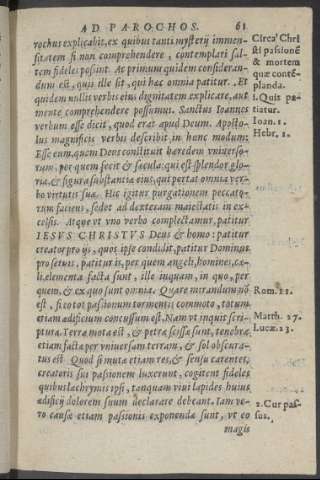 AD PAROCHOS. 61
rochus explicabit, ex quibus tanti mysterij immen-
sitatem si non comprehendere, contemplari sal-
tem fideles possint. Ac primùm quidem consideran-
dum est, quis ille sit, qui hæc omnia patitur. Et
quidem nullis verbis eius dignitatem explicare, aut
mente comprehendere possumus. Sanctus Ioannes
verbum esse dicit, quod erat apud Deum. Aposto-
lus magnificis verbis describit in hunc modum;
Esse eum, quem Deus constituit hæredem vniuerso-
rum, per quem fecit & sæcula: qui est splendor glo-
riæ, & figura substantiæ eius, qui portat omnia ver-
bo virtutis suæ. Hic igitur purgationem peccato-
rum faciens, sedet ad dexteram maiestatis in ex-
celsis. Atque vt vno verbo complectamur, patitur
IESVS CHRISTVS Deus & homo: patitur
creator pro ijs, quos ipse condidit, patitur Dominus
pro seruis, patitur is, per quem angeli, homines, cæ-
li, elementa facta sunt, ille inquam, in quo, per
quem, & ex quo sunt omnia. Quare mirandum nō
est, si eo tot passionum tormentis commoto, totum
etiam ædificium concussum est. Nam vt inquit scri-
ptura. Terra mota est, & petræ scissæ sunt, tenebræ
etiam factæ per vniuersam terram, & sol obscura-
tus est. Quod si mutæ etiam res, & sensu carentes,
creatoris sui passionem luxerunt, cogitent fideles
quibus lachrymis ipsi, tanquam viui lapides huius
ædificij dolorem suum declarare debeant. iam ve-
ro causæ etiam passionis exponendæ sunt, vt eo
magis
Circa Chri
sti passionē
& mortem
quæ conté-
planda.
1. Quis pa-
tiatur.
Ioan. 1.
Hebr. 1.
Rom. 11.
Matth. 27.
Lucæ. 23.
2. Cur pas-
sus.